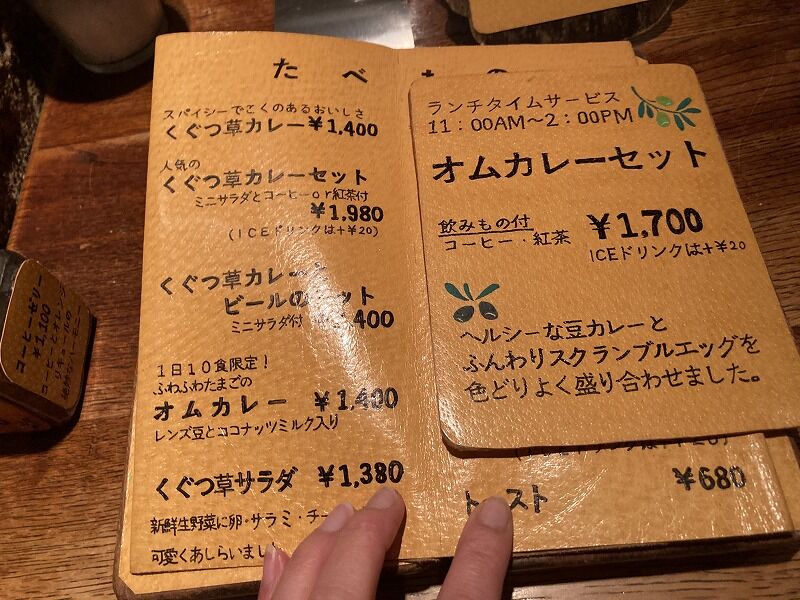 たべもの
スパイシーでこくのあるおいしさ
くぐつ草カレー ¥1,400
人気の
くぐつ草カレーセット
ミニサラダとコーヒーor紅茶付
¥1,980
(ICEドリンクは+¥20)
くぐつ草カレーと
ビールのセット
ミニサラダ付 400
1日10食限定!
ふわふわたまごの
オムカレー ¥1,400
レンズ豆とココナッツミルク入り
くぐつ草サラダ ¥1,380
新鮮生野菜に卵・サラミ・チー
可愛くあしらいまし
ランチタイムサービス
11:00AM〜2:00PM
オムカレーセット
飲みもの付
コーヒー・紅茶 ¥1,700
ICEドリンクは+¥20
ヘルシーな豆カレーと
ふんわりスクランブルエッグを
色どりよく盛り合わせました。
(ICEドリンクは+¥20)
トースト ¥680
コーヒーゼリー
¥1,100